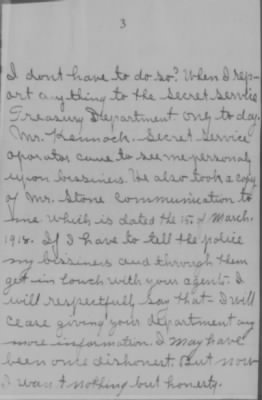 3
I dont have to do so? When I rep-
ort anything to the Secret Service
Treasury Department only to day.
Mr. Kennoch. Secret Service
oporator came to see me personaly
upon bessiners. He also took a copy
of Mr. Stone communication to
me which is dated the 15 of March.
1918. If I have to tell the police
my bessiners and through them
get in touch with your agents. I
will respectfully say that I will
cease giving your department any
more information. I may have
been once dishonest. But now
I want nothing but honesty.